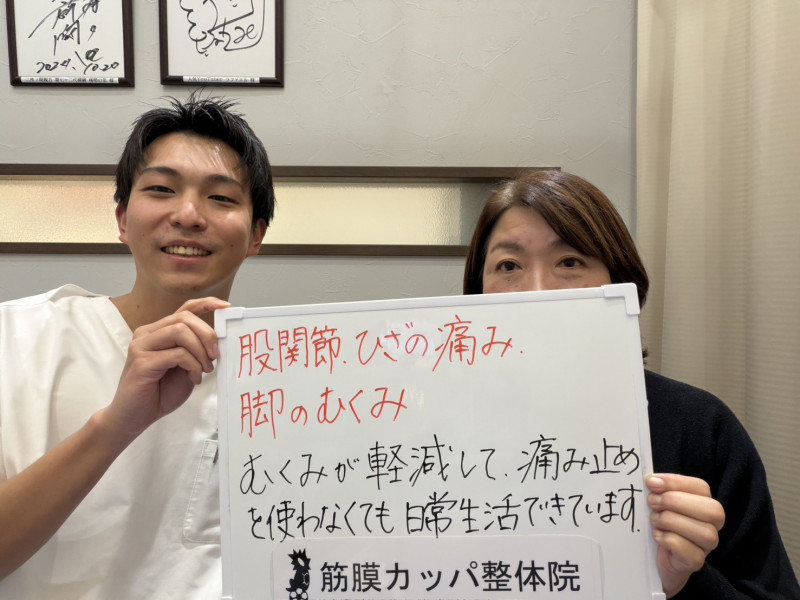 2024.10.20
股関節、ひざの痛み、
脚のむくみ
むくみが軽減して、痛み止め
を使わなくても日常生活できています。
筋膜カッパ整体院